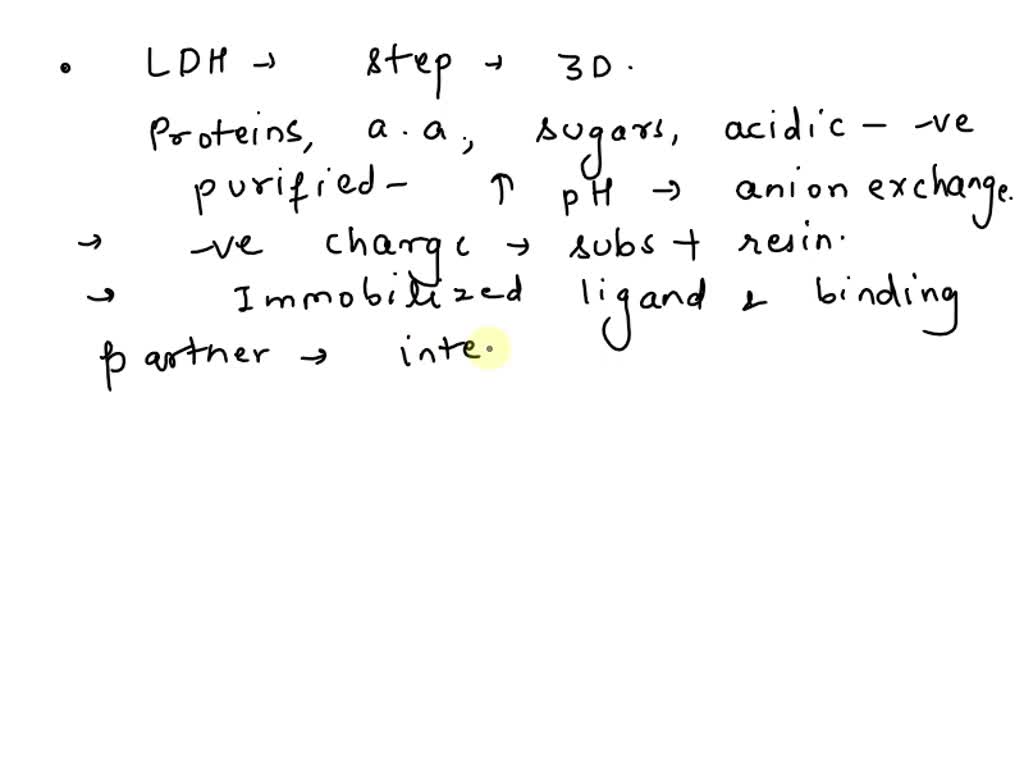 • LDH → step → 3D.
Proteins, a.a, sugars, acidic - -ve
purified - ↑ pH → anion exchange.
→ -ve charge → subs + resin.
→ Immobilized ligand & binding
partner → inte